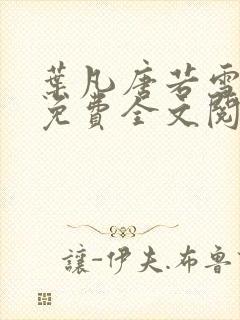 葉凡唐若雪
免費全文閱
讓-伊夫.布魯